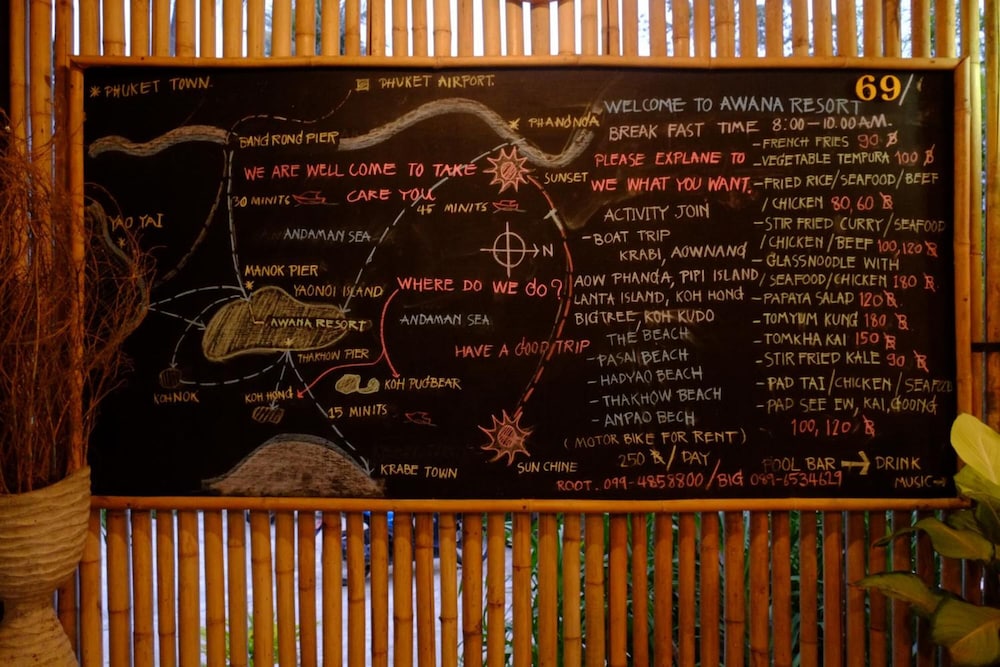 * PHUKET TOWN.
PHUKET AIRPORT.
BANGRONG PIER
PHANGNGA
WE ARE WELL COME TO TAKE
CARE YOU
SUNSET
30 MINITS
45 MINITS
YAO YAI
ANDAMAN SEA
N
MANOK PIER
YAONOI ISLAND
WHERE DO WE do?
AWANA RESORT
ANDAMAN SEA
THAKHOW PIER
HAVE A GOOD TRIP
KOH NOK
KOH HONG
KOH PUGBEAR
15 MINITS
KRABE TOWN
SUN CHINE
69/
WELCOME TO AWANA RESORT
BREAK FAST TIME 8:00-10.00 AM.
PLEASE EXPLANE TO
WE WHAT YOU WANT.
ACTIVITY JOIN
- BOAT TRIP
KRABI, AOWNANG
AOW PHANGA, PIPI ISLAND
LANTA ISLAND, KOH HONG
BIGTREE, KOH KUDO
THE BEACH
- PASAI BEACH
- HADYAO BEACH
- THAKHOW BEACH
- ANPAO BECH
(MOTOR BIKE FOR RENT)
250 ฿/DAY
ROOT. 099-4858800/BIG 089-6534629
- FRENCH FRIES 90 ฿
- VEGETABLE TEMPURA 100 ฿
- FRIED RICE/SEAFOOD/BEEF
/CHICKEN 80,60 ฿
- STIR FRIED CURRY/SEAFOOD
/CHICKEN/BEEF 100,120 ฿
- GLASSNOODLE WITH
/SEAFOOD/CHICKEN 180 ฿
- PAPAYA SALAD 120 ฿.
- TOMYUM KUNG 180 ฿.
- TOMKHA KAI 150 ฿
- STIR FRIED KALE 90 ฿
- PAD TAI/CHICKEN/SEAFOOD
- PAD SEE EW, KAI, GOONG
100,120 ฿
POOL BAR → DRINK
MUSIC →